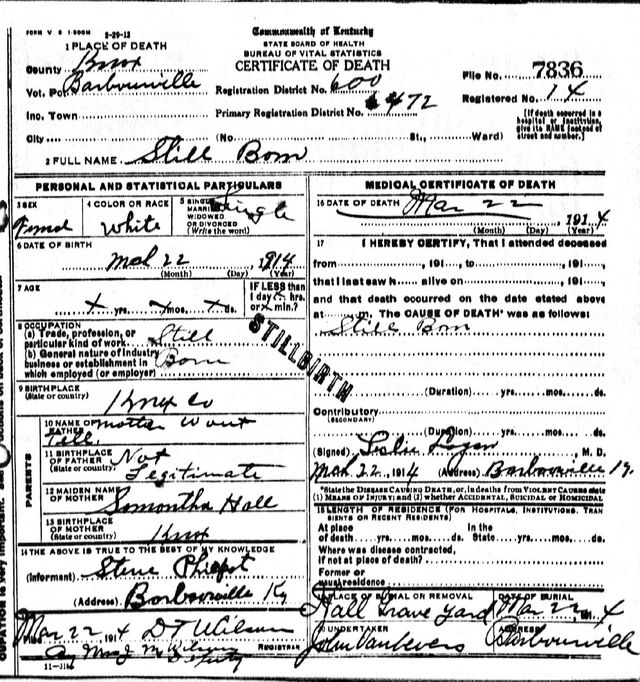 FORM V S 1-500M 2-29-12
Commonwealth of Kentucky
STATE BOARD OF HEALTH
BUREAU OF VITAL STATISTICS
CERTIFICATE OF DEATH
1 PLACE OF DEATH
County Knox
Vot. Pct Barbourville
Inc. Town
City
Registration District No. 600
Primary Registration District No. 6472
File No. 7836
Registered No. 14
(No St., Ward)
[If death occurred in a hospital or institution, give its NAME instead of street and number.]
2 FULL NAME Still Born
PERSONAL AND STATISTICAL PARTICULARS
3 SEX Femal
4 COLOR OR RACE White
5 SINGLE MARRIED WIDOWED OR DIVORCED (Write the word) Single
6 DATE OF BIRTH
Mch 22 1914
(Month) (Day) (Year)
7 AGE
x yrs. x mos. x ds.
IF LESS than 1 day hrs. or x min.?
8 OCCUPATION
(a) Trade, profession, or particular kind of work Still
(b) General nature of industry business or establishment in which employed (or employer) Born
STILLBIRTH
9 BIRTHPLACE (State or country)
Knox Co
PARENTS
10 NAME OF FATHER Mother Wont Tell
11 BIRTHPLACE OF FATHER (State or country) Not Legitimate
12 MAIDEN NAME OF MOTHER Somontha Hall
13 BIRTHPLACE OF MOTHER (State or country) Knox
14 THE ABOVE IS TRUE TO THE BEST OF MY KNOWLEDGE
(Informant) Steve
(Address) Barbourville Ky
15 Mar 22 1914 D T Wilson
REGISTRAR
Deputy
11-3184
MEDICAL CERTIFICATE OF DEATH
16 DATE OF DEATH Mar 22 1914
(Month) (Day) (Year)
17 I HEREBY CERTIFY, That I attended deceased
from , 191 , to , 191 ,
that I last saw h alive on , 191 ,
and that death occurred on the date stated above
at m. The CAUSE OF DEATH* was as follows:
Still Born
(Duration) yrs. mos. ds.
Contributory
(SECONDARY)
(Duration) yrs. mos. ds.
(Signed) Leslie Logan, M. D.
Mar 22, 1914 (Address) Barbourville Ky.
*State the DISEASE CAUSING DEATH, or, in deaths from VIOLENT CAUSES state
(1) MEANS OF INJURY; and (2) whether ACCIDENTAL, SUICIDAL or HOMICIDAL
18 LENGTH OF RESIDENCE (FOR HOSPITALS, INSTITUTIONS, TRANSIENTS OR RECENT RESIDENTS)
At place of death yrs. mos. ds. In the State yrs. mos. ds.
Where was disease contracted,
if not at place of death?
Former or
usual residence
19 PLACE OF BURIAL OR REMOVAL Hall Grave Yard
DATE OF BURIAL Mar 22 1914
20 UNDERTAKER John Vanbevers
ADDRESS Barbourville